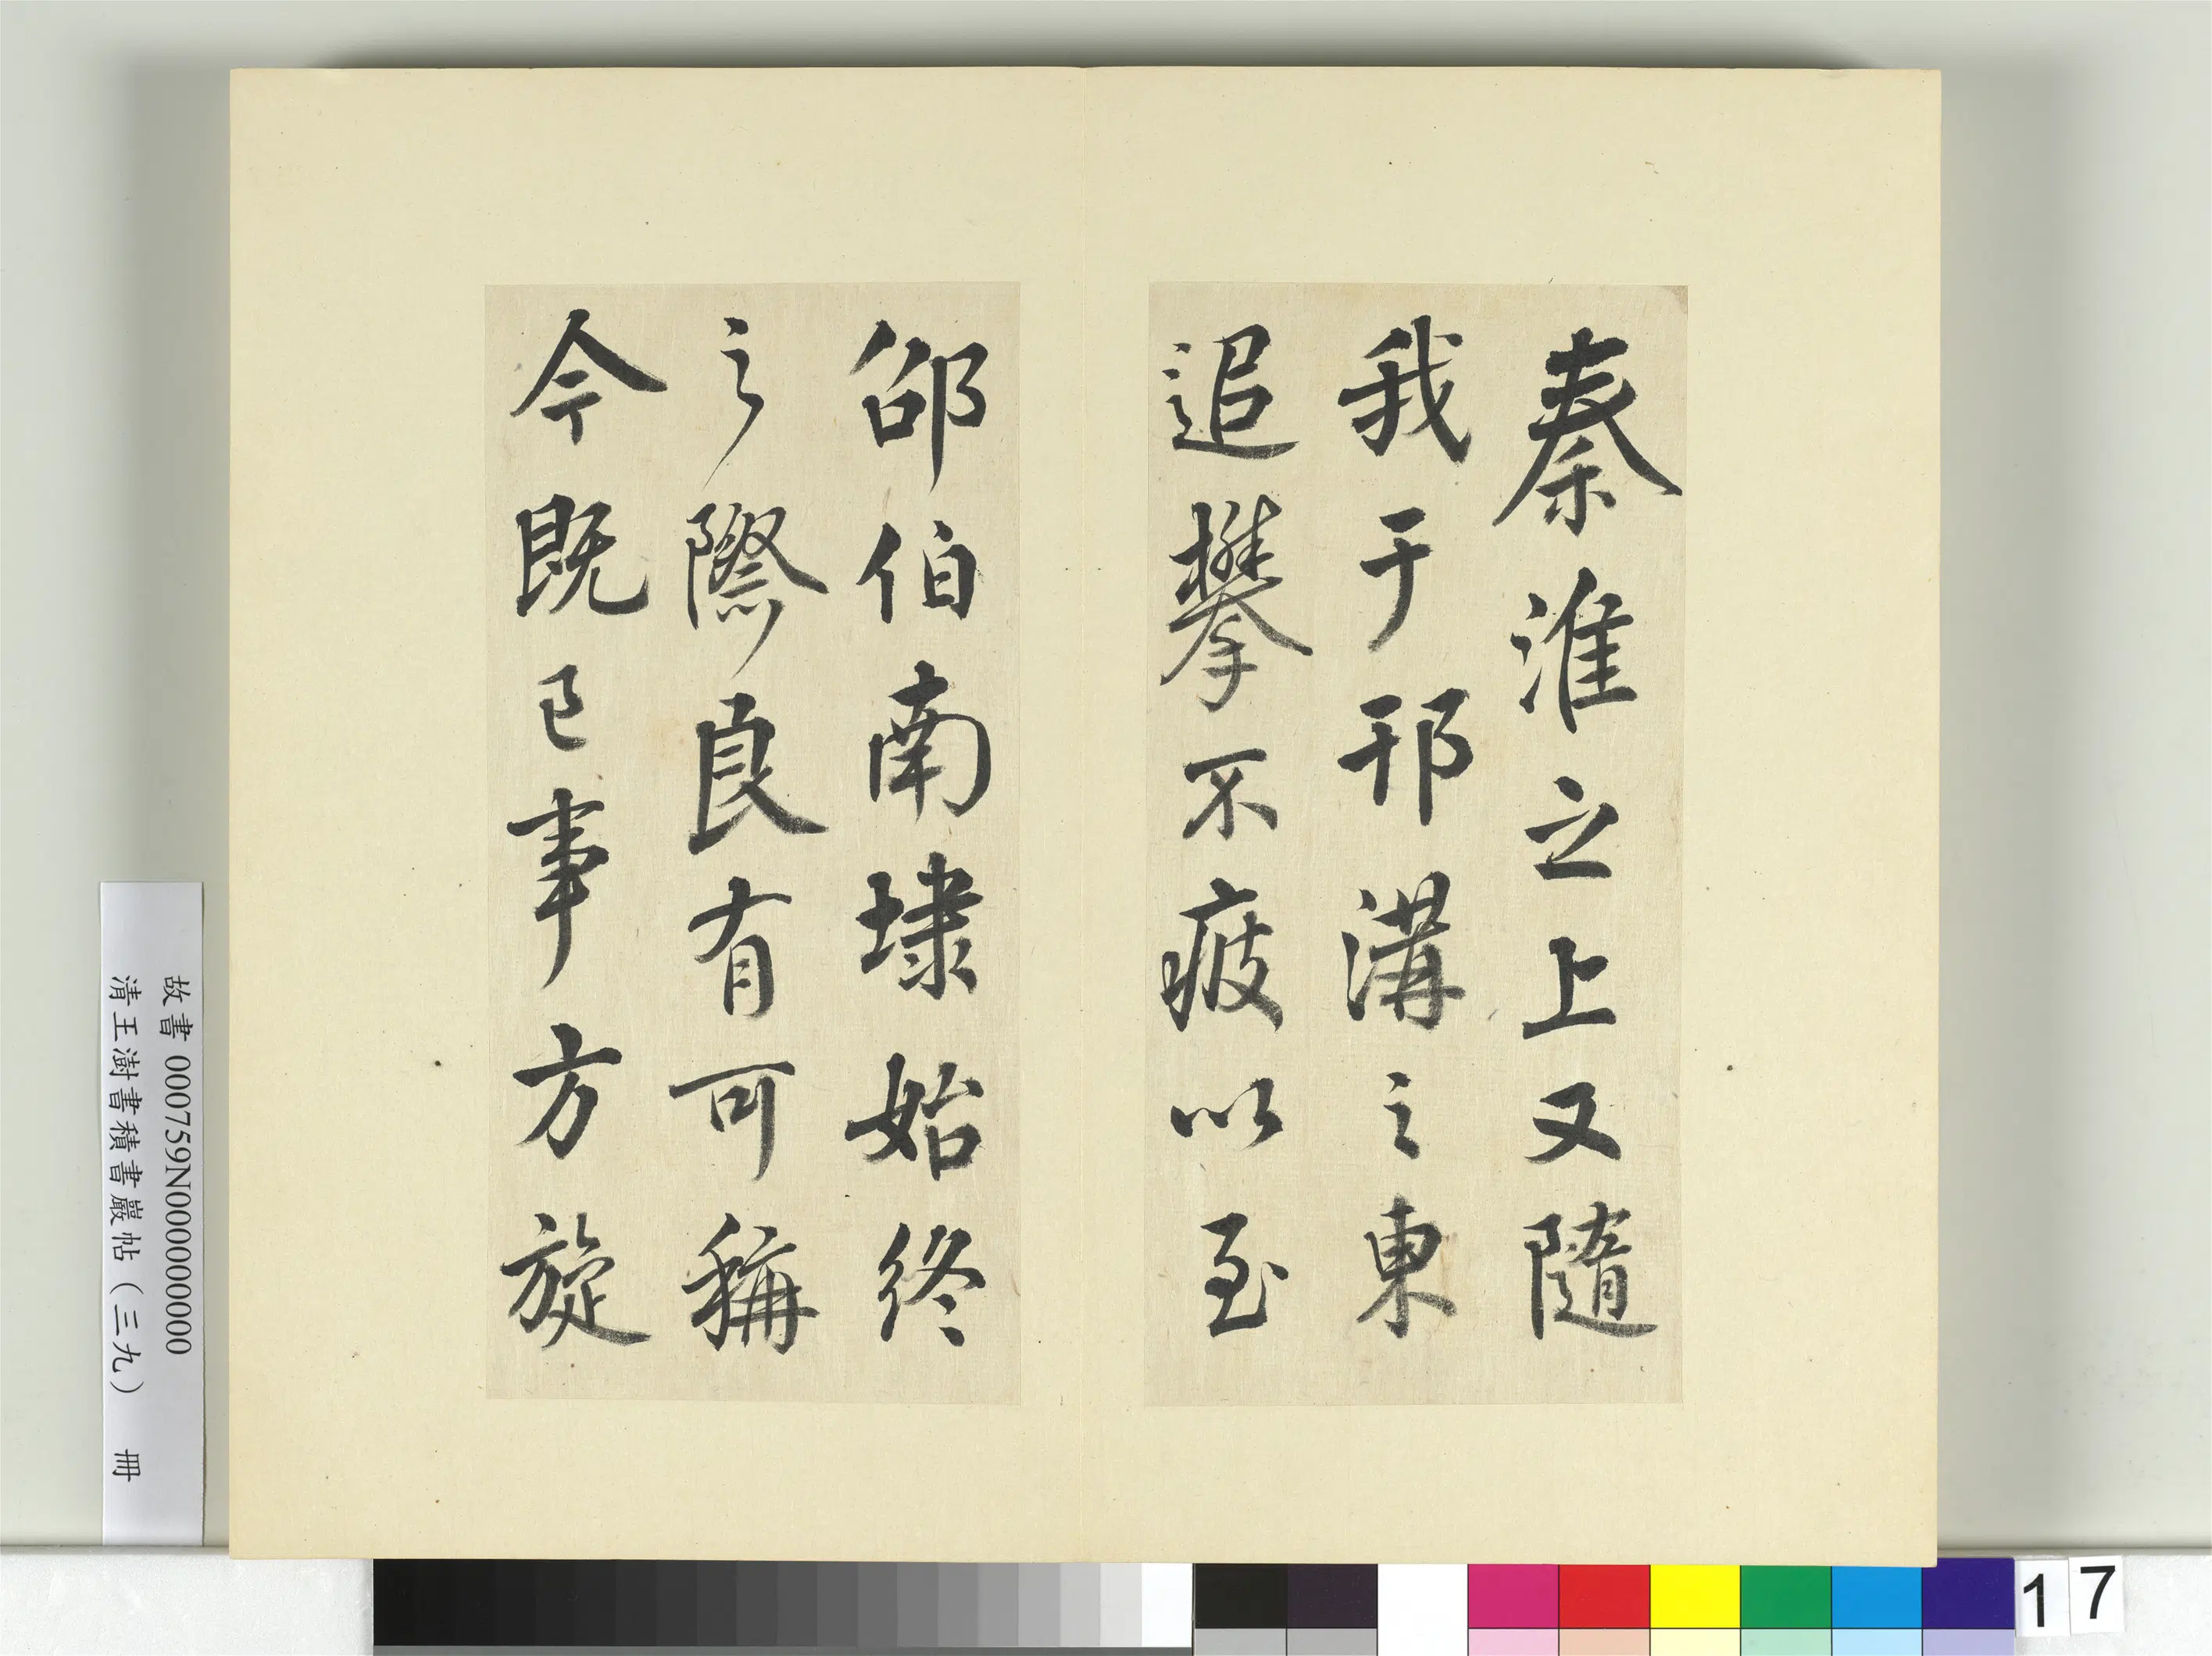 秦淮之上上又隨
我于邗溝之東
追攀不疲以至
邵伯南埭始終
之際良有可稱
今既已事方旋
故書 000759N000000000
清王澍書積書巖帖（三九） 冊
17